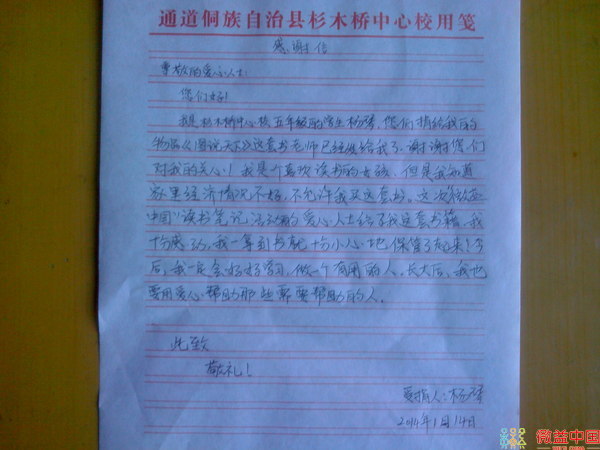 通道侗族自治县杉木桥中心校用笺
感谢信
尊敬的爱心人士:
您们好!
我是杉木桥中心校五年级的学生杨琴,您们捐给我的
物品《图说天下》这套书老师已经发给我了.谢谢您们
对我的关心!我是个喜欢读书的女孩,但是我知道
家里经济情况不好,不允许我买这套书。这次"微益
中国"读书笔记活动的爱心人士给了我这套书籍,我
十份感动,我一拿到书就十份小心地保管了起来!今
后,我一定会好好学习,做一个有用的人.长大后,我也
要用爱心帮助那些需要帮助的人.
此致
敬礼!
受捐人:杨琴
2014年1月14日
微益中国